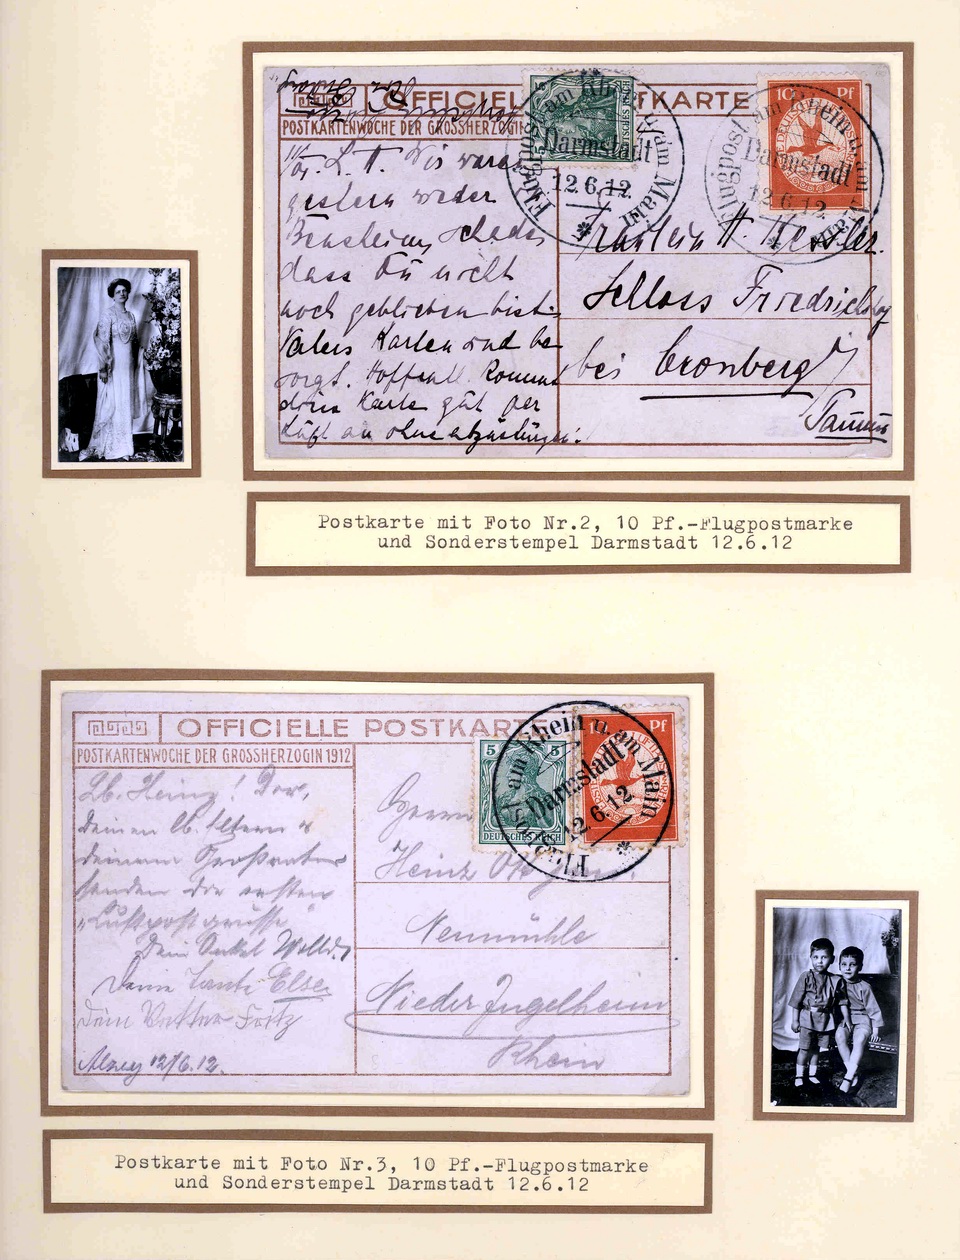 OFFICIELLE POSTKARTE
POSTKARTENWOCHE DER GROSSHERZOGIN
DEUTSCHES REICH
10 Pf
Flugpost am Rhein u. am Main
Darmstadt
12.6.12
Flugpost am Rhein u. am Main
Darmstadt
12.6.12
Wir waren
gestern weder
Bensheim
dass Du nicht
noch geblieben bist.
Karten sind be
sorgt. Hoffentl. kommt
Karte gut per
Luft an ohne
Fräulein H. Kessler.
Schloss Friedrichshof
bei Cronberg
Taunus
Postkarte mit Foto Nr.2, 10 Pf.-Flugpostmarke
und Sonderstempel Darmstadt 12.6.12
OFFICIELLE POSTKARTE
POSTKARTENWOCHE DER GROSSHERZOGIN 1912
5 5
DEUTSCHES REICH
10 Pf
am Rhein u. am Main
Darmstadt
12.6.12
Lb. Heinz! Dir,
Deinen lb. Eltern &
Deinem Grossvater
senden die ersten
„Luftpostgrüsse"
Dein Onkel
Deine Tante Else
Dein Vetter Fritz
Alzey 12/6.12.
Herrn
Heinz
Neumühle
Nieder Ingelheim
Rhein
Postkarte mit Foto Nr.3, 10 Pf.-Flugpostmarke
und Sonderstempel Darmstadt 12.6.12